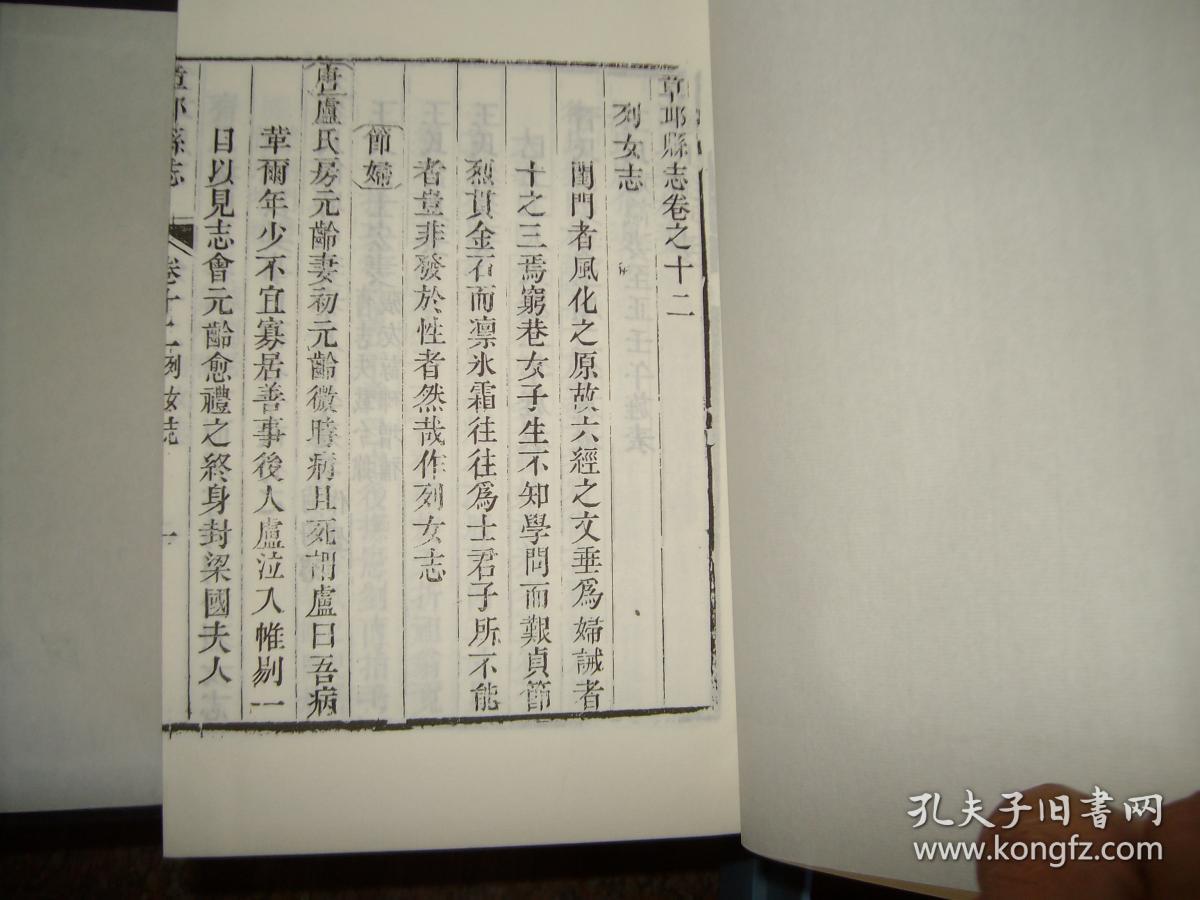 章邱縣志卷之十二
列女志
閨門者風化之原故六經之文垂爲婦誡者
十之三焉窮巷女子生不知學問而艱貞節
烈貫金石而凛氷霜往往爲士君子所不能
者豈非發於性者然哉作列女志
節婦
唐盧氏房元齡妻初元齡微時病且死謂盧曰吾病
革爾年少不宜寡居善事後人盧泣入帷剔一
目以見志會元齡愈禮之終身封梁國夫人
章邱縣志 卷十二 列女志 一
孔夫子旧书网
www.kongfz.com